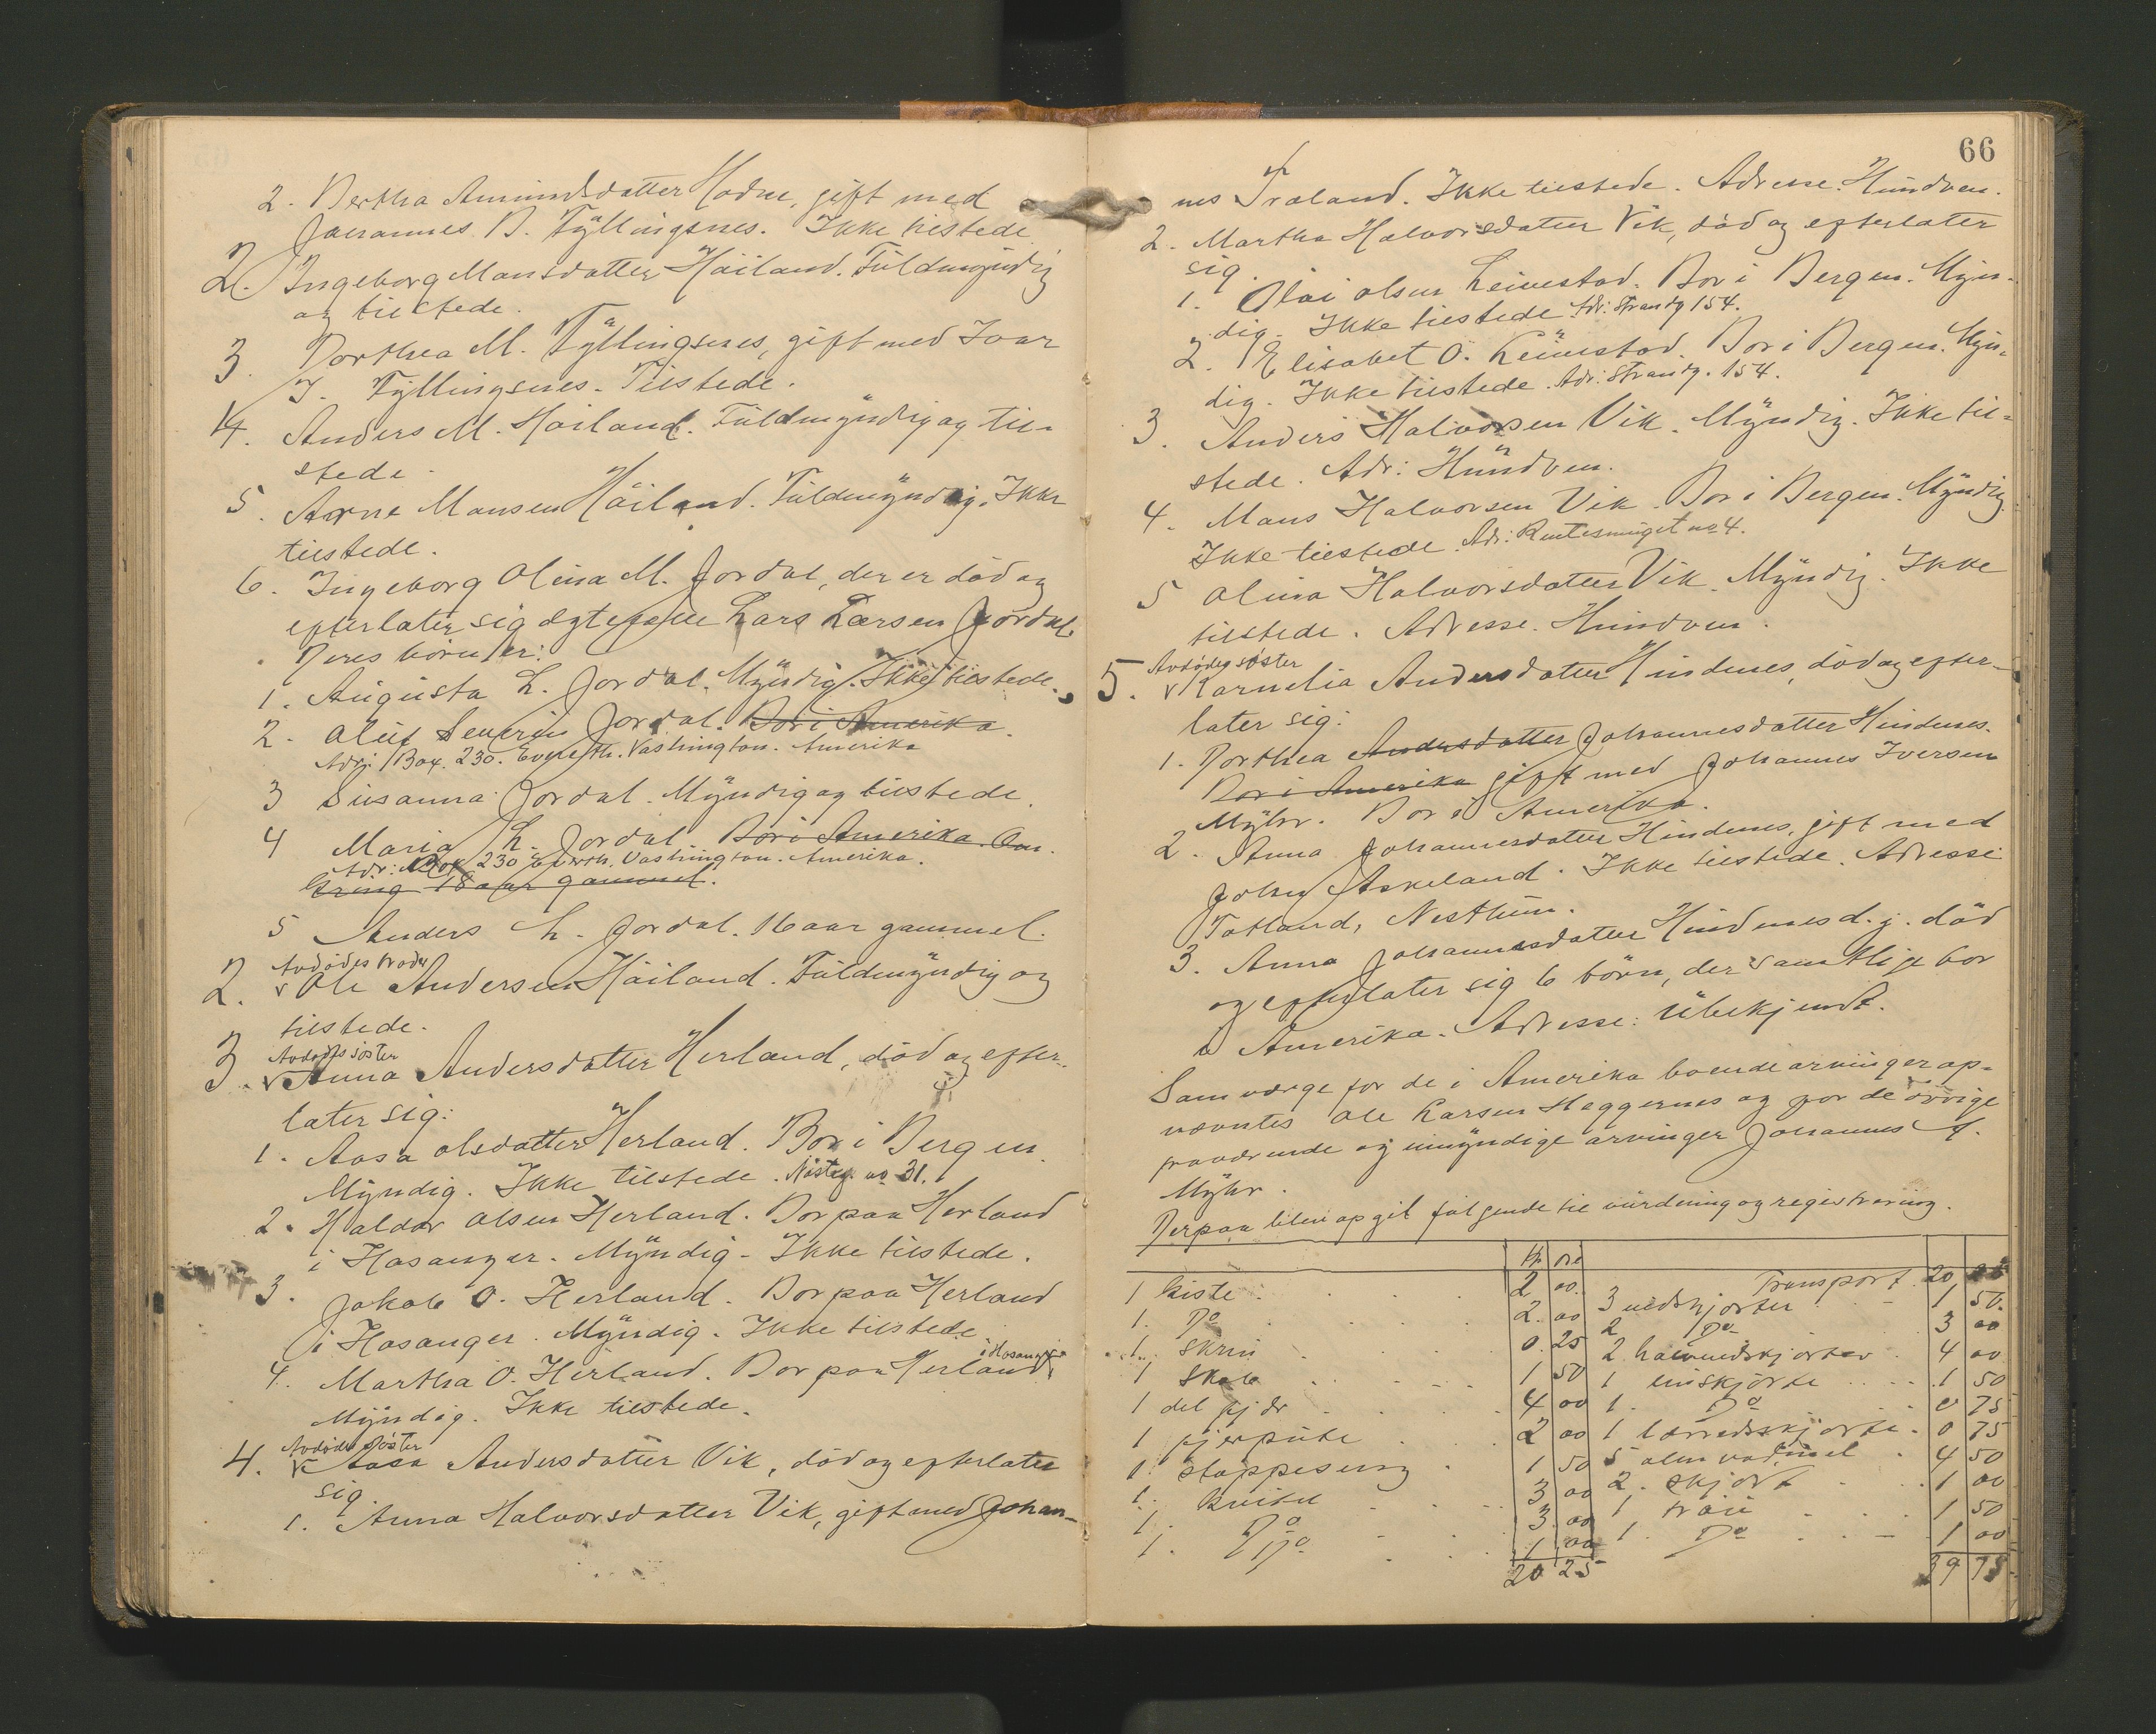 2. Bertha Amundsdatter Hodne, gift med
Johannes B. Tyllingsnes. Ikke tilstede
2. Ingeborg Mansdatter Häiland. Fuldmyndig
og tilstede.
3. Dorthea M. Tyllingsnes, gift med Ivar
I. Tyllingsnes. Tilstede.
4. Anders M. Häiland. Fuldmyndig og til-
stede.
5. Arne Monsen Häiland. Fuldmyndig. Ikke
tilstede.
6. Ingeborg Olina M. Jordal, der er död og
efterlater sig ægtefelle Lars Larsen Jordal.
Deres börn er:
1. Augusta L. Jordal. Myndig. Ikke tilstede.
2. Oluf Severin Jordal. Bor i Amerika.
Adr. Box. 230. Everett. Vashington. Amerika
3 Susanna Jordal. Myndig og tilstede.
4 Maria L. Jordal. Bor i Amerika. Om-
Adr: Box 230 Vashington. Amerika.
kring 18 aar gammel.
5 Anders L. Jordal. 16 aar gammel.
Avdödes broder
2. v Ole Andersen Häiland. Fuldmyndig og
tilstede.
Avdödes söster
3. v Anna Andersdatter Herland, död og efter-
later sig:
1. Aasa Olsdatter Herland. Bor i Bergen.
Myndig. Ikke tilstede. Nösteg. no 31.
2. Haldor Olsen Herland. Bor paa Herland
i Hosanger. Myndig. Ikke tilstede.
3. Jakob O. Herland. Bor paa Herland
i Hosanger. Myndig. Ikke tilstede
4. Martha O. Herland. Bor paa Herland i Hosanger
Myndig. Ikke tilstede.
Avdödes söster
4. v Aasa Andersdatter Vik, död og efterlater
sig
1. Anna Halvorsdatter Vik, gift med Johan-
66
nes Traland. Ikke tilstede. Adresse. Hundven.
2. Martha Halvorsdatter Vik, död og efterlater
sig.
1. Olai Olsen Leinestad. Bor i Bergen. Myn-
dig. Ikke tilstede. Adr: Strandg 154.
2. Elisabet O. Leinestad. Bor i Bergen. Myn-
dig. Ikke tilstede. Adr: Strandg. 154.
3. Anders Halvorsen Vik. Myndig. Ikke til-
stede. Adr: Hundven.
4. Mons Halvorsen Vik. Bor i Bergen. Myndig.
Ikke tilstede. Adr: no 4.
5 Olina Halvorsdatter Vik. Myndig. Ikke
tilstede. Adresse. Hundven.
Avdödes söster
5. v Karnelia Andersdatter Hindenes, död og efter-
later sig:
1. Dorthea Andersdatter Johannesdatter Hindenes.
Bor i Amerika gift med Johannes Iversen
Myhr. Bor i Amerika.
2. Anna Johannesdatter Hindenes, gift med
Johan Askeland. Ikke tilstede. Adresse
Totland, Nesttun.
3. Anna Johannesdatter Hindenes d. y. död
og efterlater sig 6 börn, der samtlige bor
i Amerika. Adresse: Ubekjendt.
Som værge for de i Amerika boende arvinger op-
nævntes Ole Larsen Heggernes og for de övrige
fraværende og umyndige arvinger Johannes A.
Myhr.
Derpaa blev opgit følgende til vurdering og registrering.
kr öre
1 kiste 2 00
1. Do 2. 00
1. Skrin 0. 25
1 Skab 1 50
1 del fjær 4 00
1 fjerpute 2 00
1 stoppeseng 1 50
1. kvitel 3 00
1. Do 3. 00
1. Do 1 00
20 25
Transport 20, 25
3 uldskjorter 1 50.
2 Do 3 00
2 halvuldskjorter 4 00
1 linskjorte 1 50
1. Do 0 75
1 lærredsskjorte 0 75
5 alen vadmel 4 50
2. skjört 1 00
1 tröie 1 50
1. Do 1 00
39 75